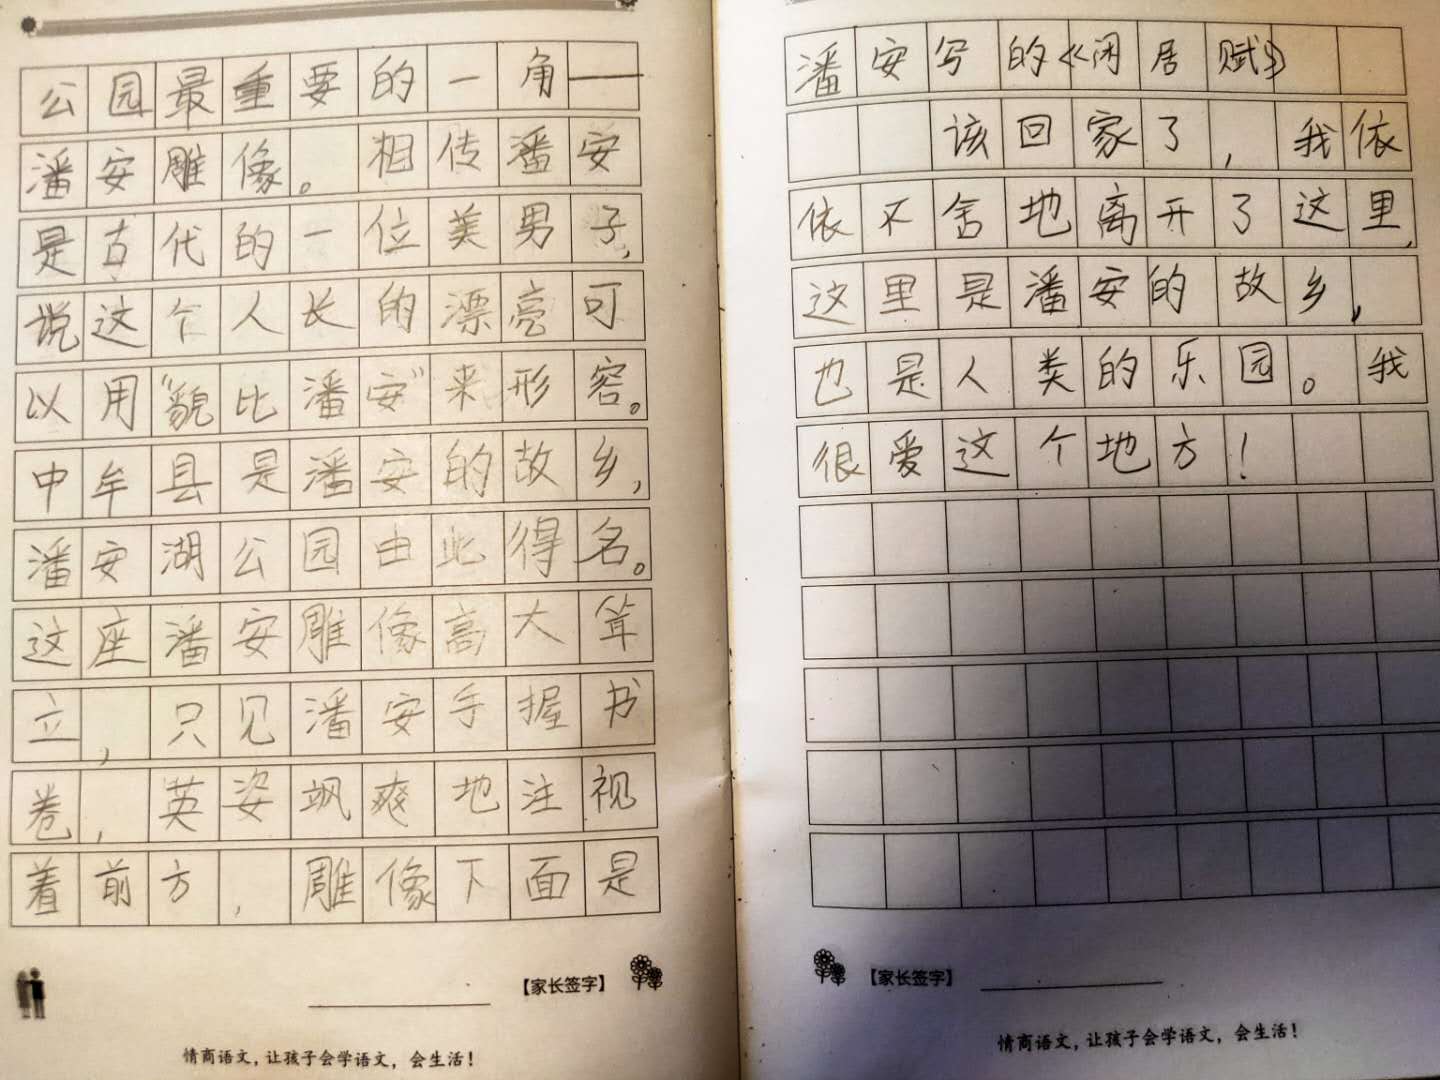 公园最重要的一角——
潘安雕像。相传潘安
是古代的一位美男子，
说这个人长的漂亮可
以用“貌比潘安”来形容。
中牟县是潘安的故乡，
潘安湖公园由此得名。
这座潘安雕像高大耸
立，只见潘安手握书
卷，英姿飒爽地注视
着前方，雕像下面是
【家长签字】
情商语文，让孩子会学语文，会生活！
潘安写的《闲居赋》
该回家了，我依
依不舍地离开了这里，
这里是潘安的故乡，
也是人类的乐园。我
很爱这个地方！
【家长签字】
情商语文，让孩子会学语文，会生活！